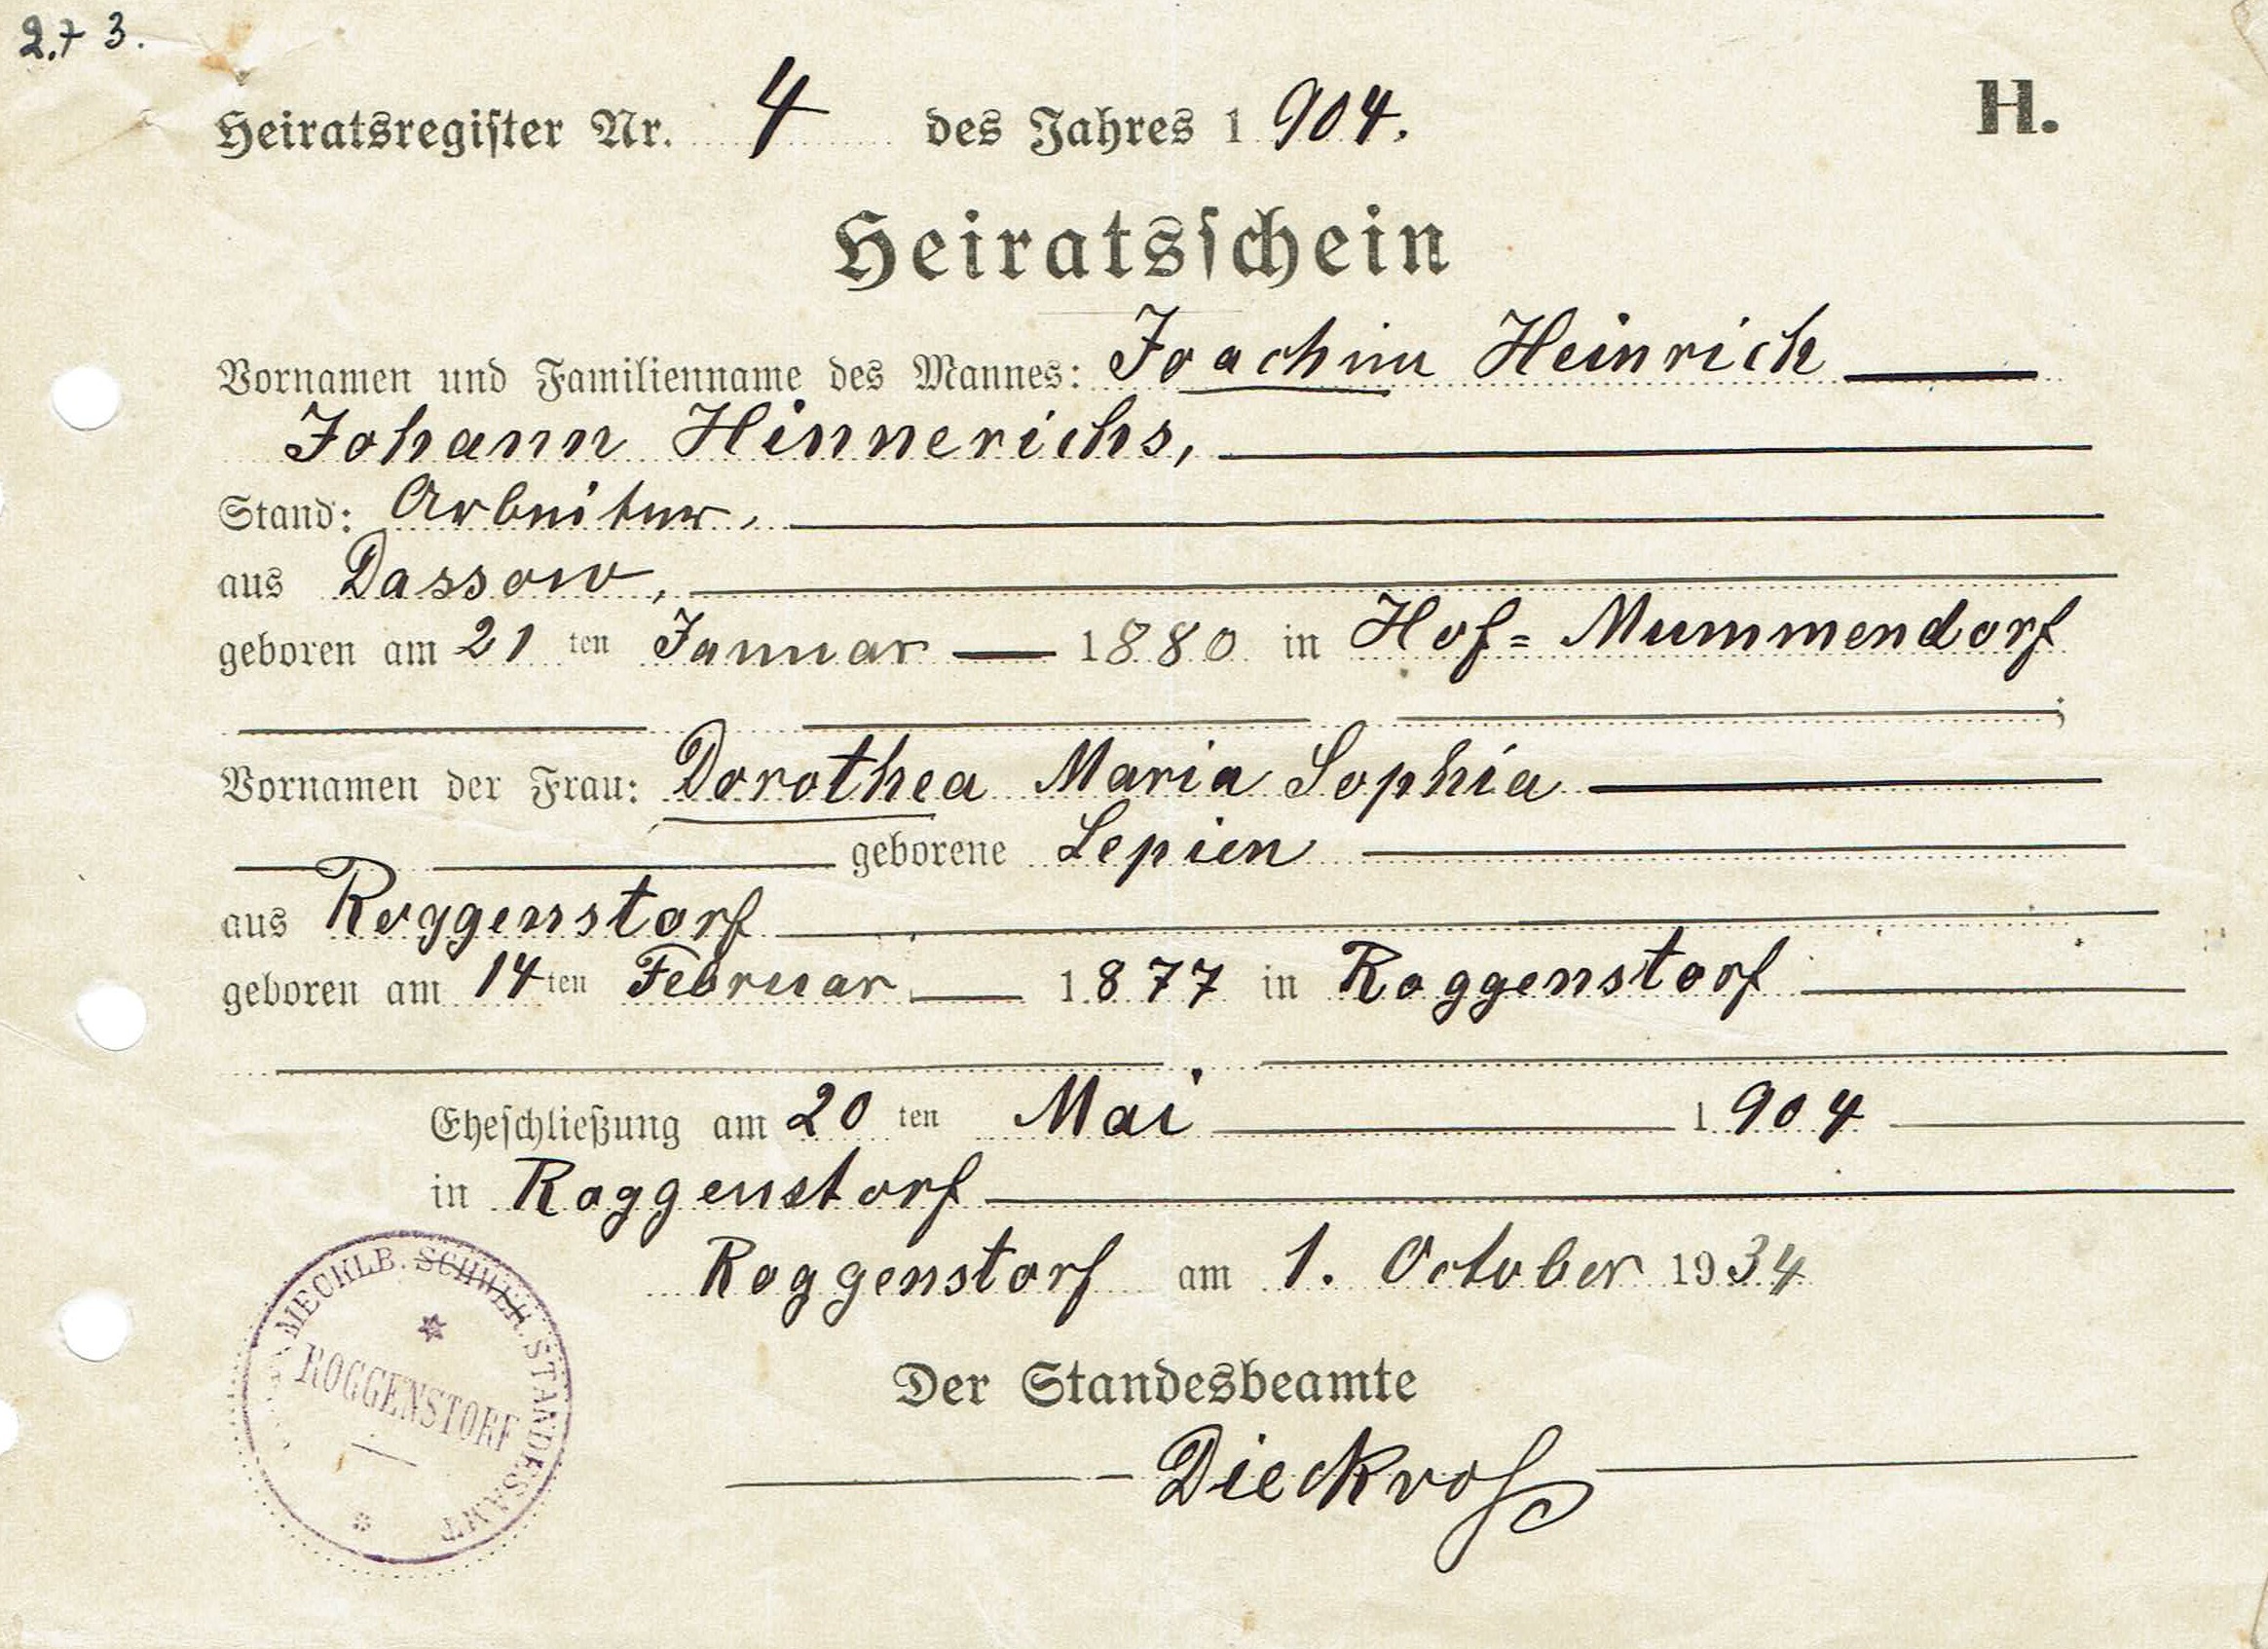 2. + 3.
Heiratsregister Nr. 4 des Jahres 1904.
H.
Heiratsschein
Vornamen und Familienname des Mannes: Joachim Heinrich
Johann Hinnerichs,
Stand: Arbeiter,
aus Dassow,
geboren am 21ten Januar 1880 in Hof= Mummendorf
;
Vornamen der Frau: Dorothea Maria Sophia
geborene Lepien
aus Roggenstorf
geboren am 14ten Februar 1877 in Roggenstorf
Eheschließung am 20ten Mai 1904
in Roggenstorf
Roggenstorf am 1. October 1934
MECKLB. SCHWER. STANDESAMT
ROGGENSTORF
Der Standesbeamte
Dieckroß